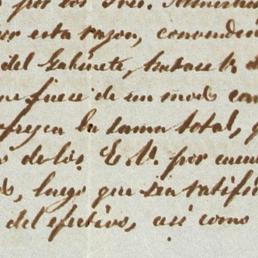 por los Sres. Ministros
por esta razon, convendri
del Gabinete, tratase V. d
me fuese de un modo con
ofrezca la suma total, q
de los E. U. por cuen
luego que sea ratifi
del efectivo, asi como